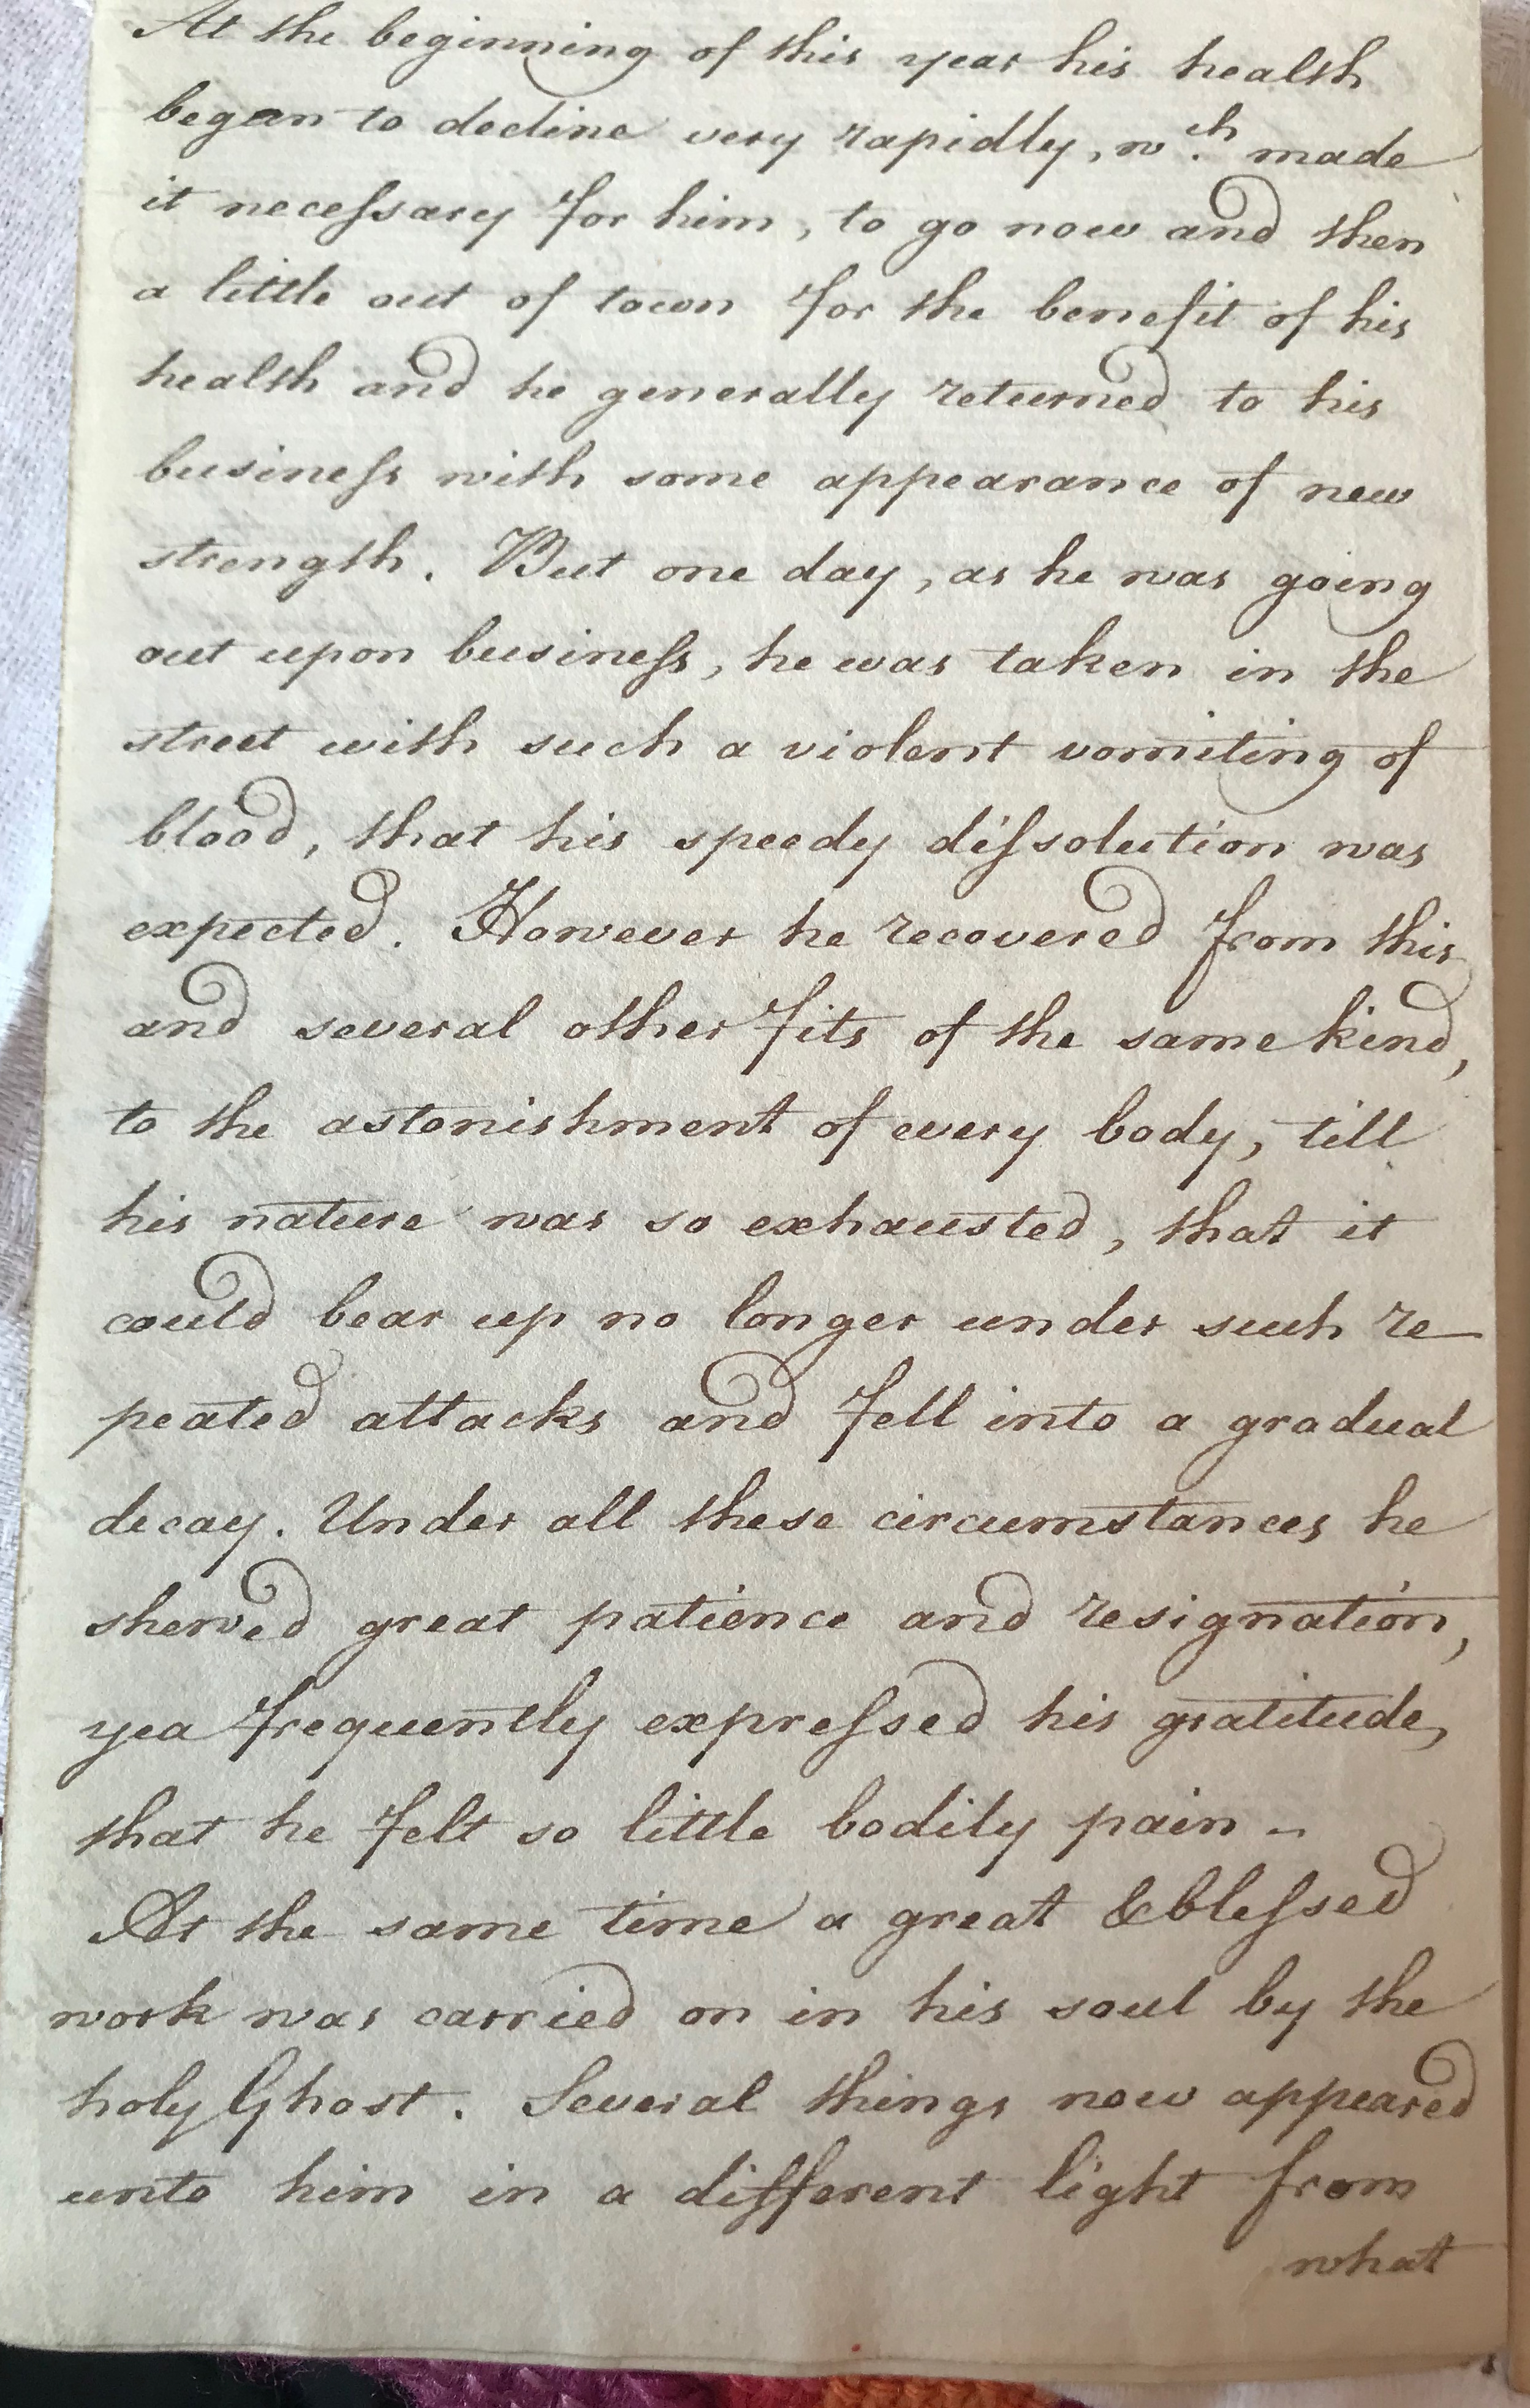 At the beginning of this year his health
began to decline very rapidly, wch. made
it neceſsary for him, to go now and then
a little out of town for the benefit of his
health and he generally returned to his
busineſs with some appearance of new
strength. But one day, as he was going
out upon busineſs, he was taken in the
street with such a violent vomiting of
blood, that his speedy diſsolution was
expected. However he recovered from this
and several other fits of the same kind,
to the astonishment of every body, till
his nature was so exhausted, that it
could bear up no longer under such re-
peated attacks and fell into a gradual
decay. Under all these circumstances he
shewed great patience and resignation,
yea frequently expreſsed his gratitude,
that he felt so little bodily pain -
At the same time a great & bleſsed
work was carried on in his soul by the
holy Ghost. Several things now appeared
unto him in a different light from
what